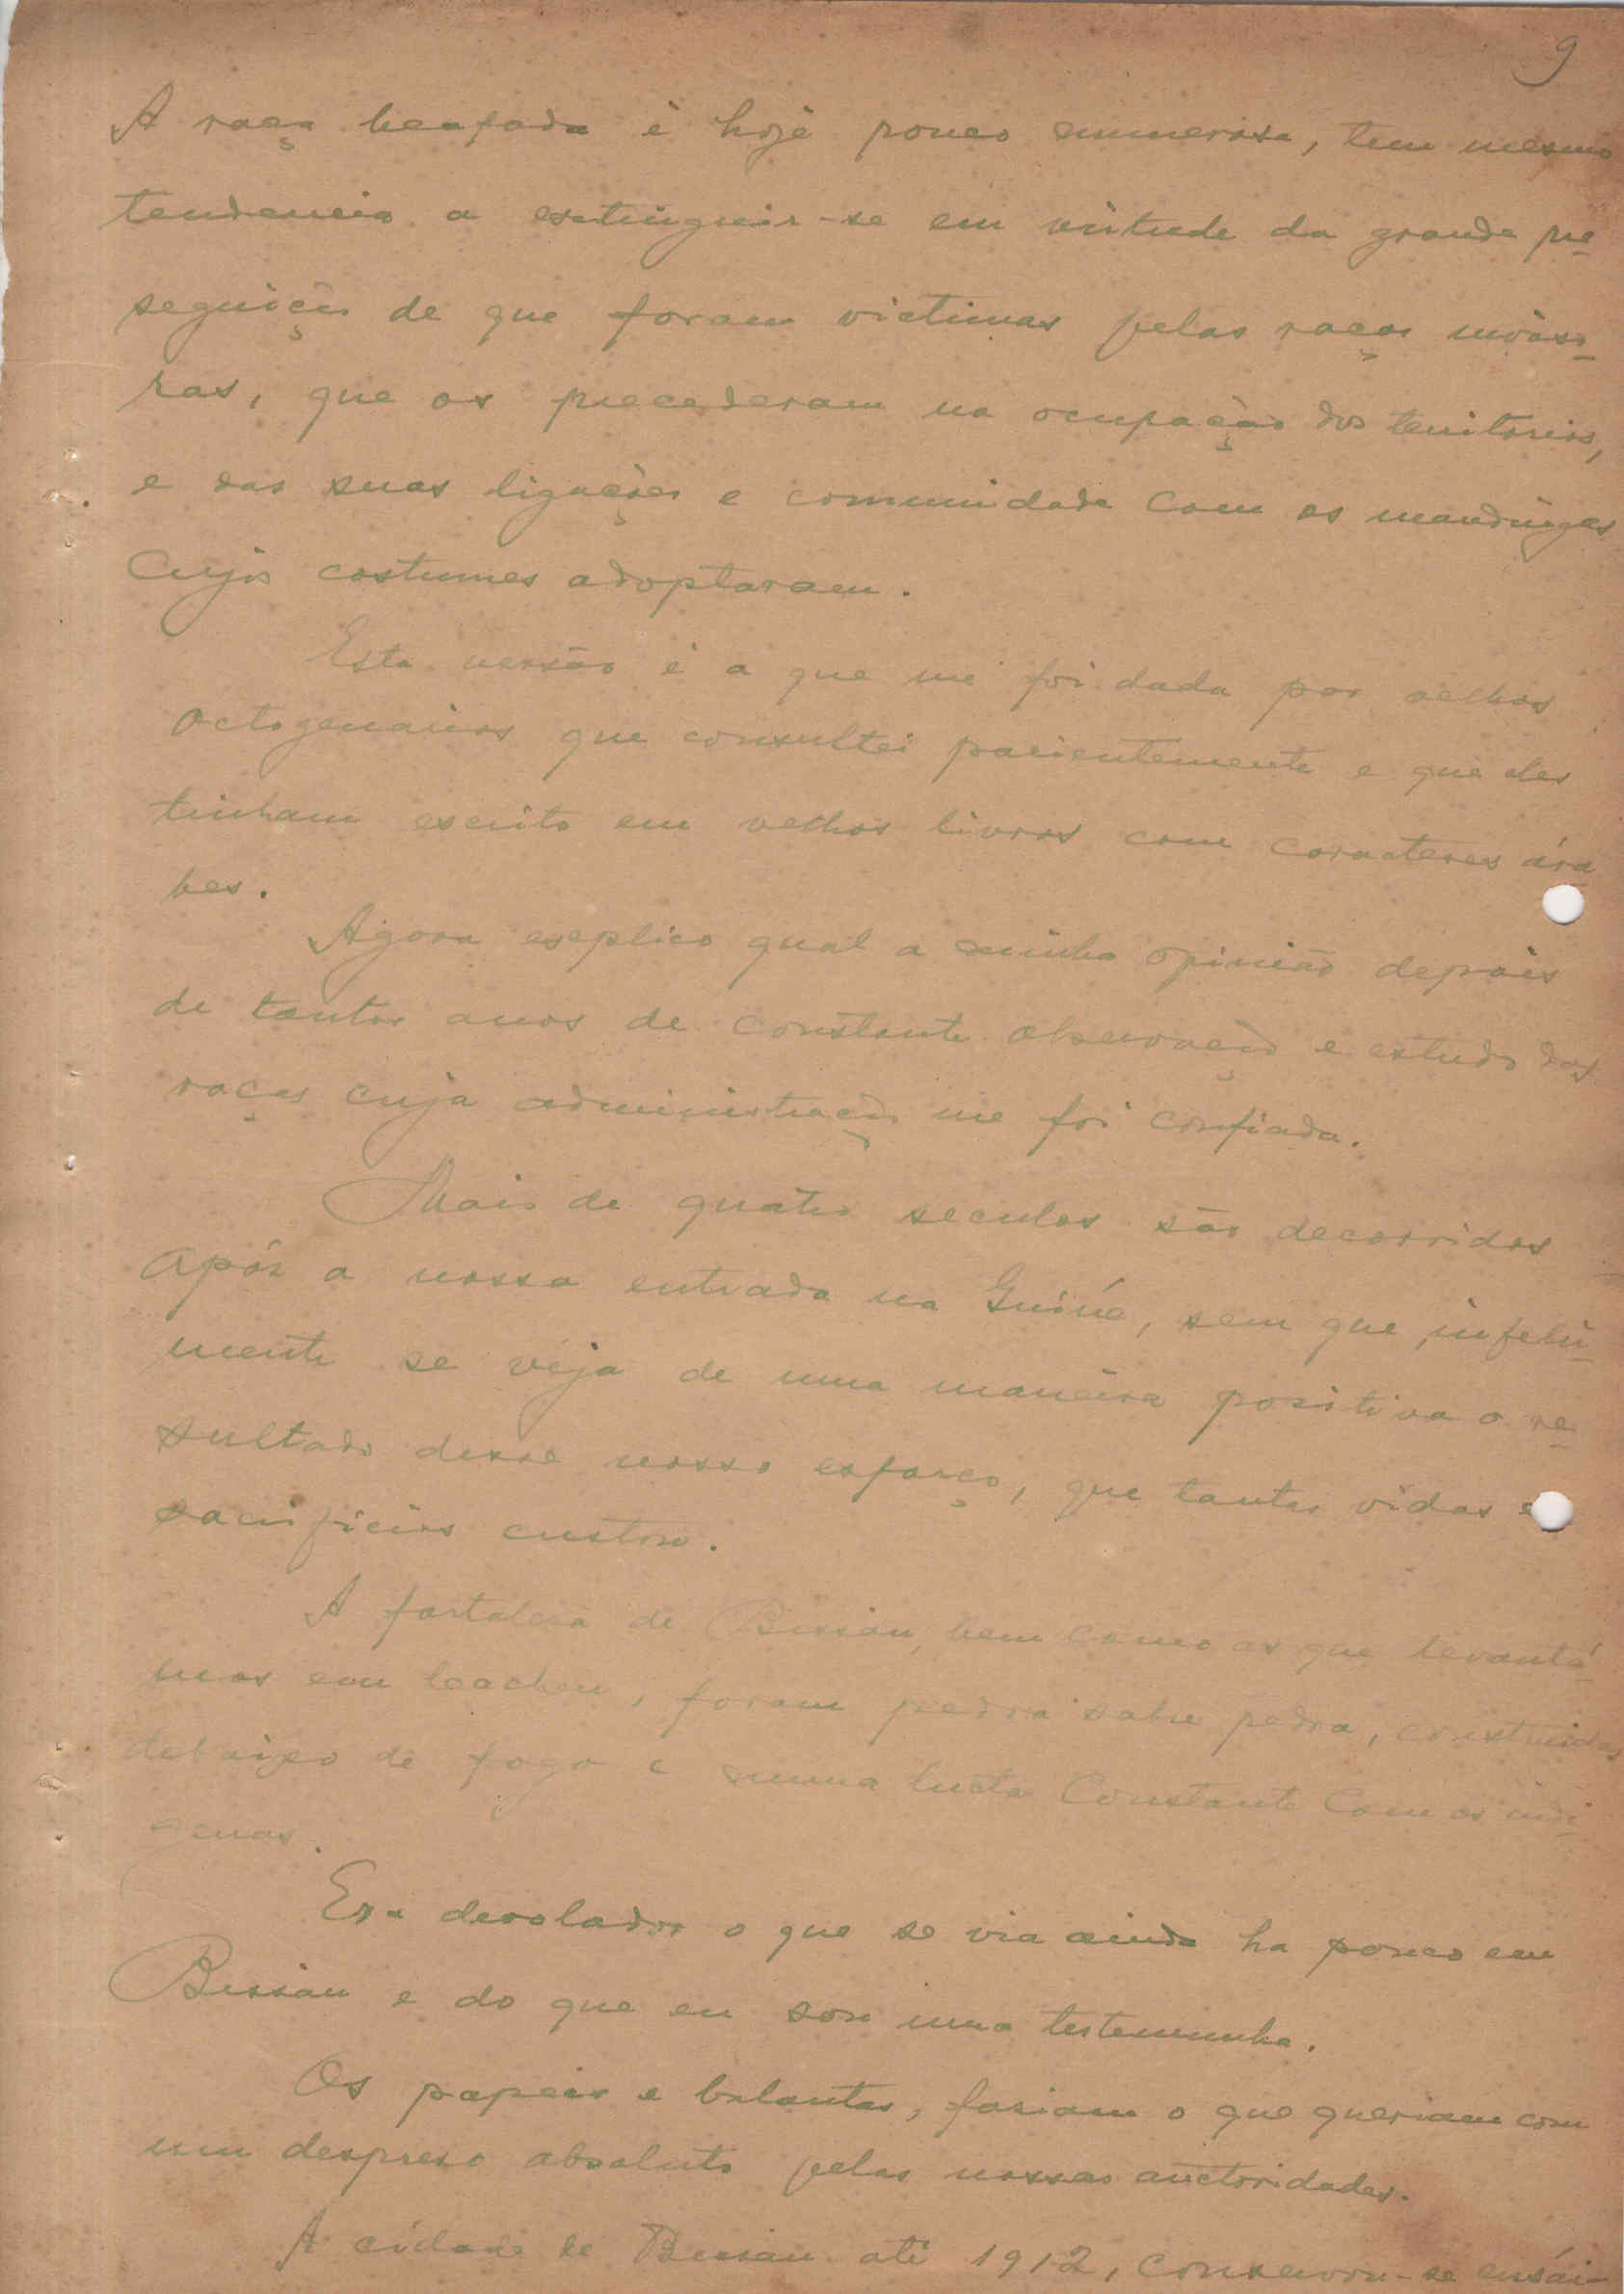 9
A raça beafada é hoje pouco numerosa, tem mesmo
tendencia a extinguir-se em virtude da grande pre
seguição de que foram victimas pelas raças invaso
ras, que os precederam na ocupação dos territorios,
e das suas ligações e comunidade com os mandingas
cujos costumes adoptaram.
Esta versão é a que me foi dada por velhos
octogenarios que consultei pacientemente e que eles
tinham escrito em velhos livros com caracteres ára
bes.
Agora explico qual a minha opinião depois
de tantos anos de constante observação e estudo das
raças cuja administração me foi confiada.
Mais de quatro seculos são decorridos
após a nossa entrada na Guiné, sem que, infeliz
mente se veja de uma maneira positiva o re
sultado desse nosso esforço, que tantas vidas e
sacrificios custou.
A fortaleza de Bissau, bem como as que levantá
mos em Cacheu, foram pedra sobre pedra, construidas
debaixo de fogo e numa lucta constante com os indi
genas.
Era desolador o que se via ainda ha pouco em
Bissau e do que eu sou uma testemunha.
Os papeis e balantas, fasiam o que queriam com
um despreso absoluto pelas nossas auctoridades.
A cidade de Bissau até 1912, conservou-se